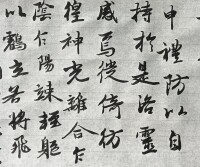 申禮防以自
持於是洛靈
感焉徙倚彷
徨神光離合乍
陰乍陽竦輕軀
以鶴立若將飛